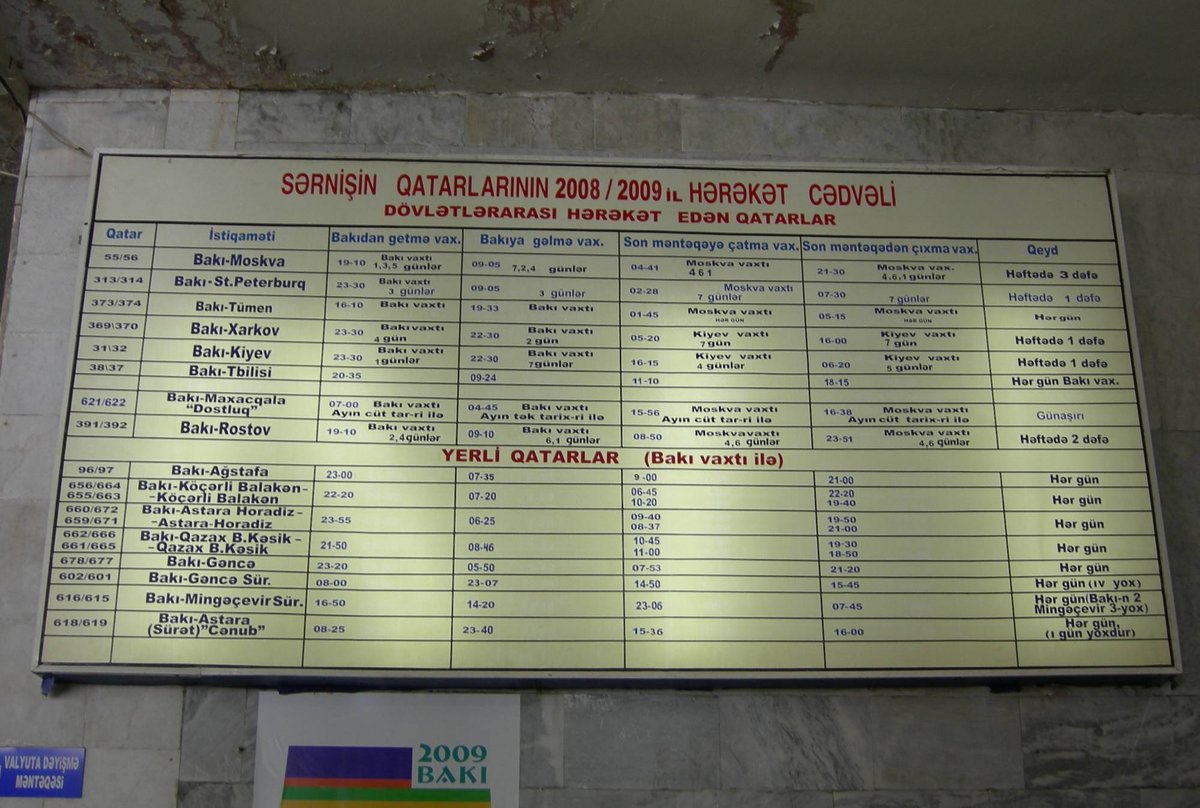 SƏRNİŞİN QATARLARININ 2008 / 2009 İL HƏRƏKƏT CƏDVƏLİ
DÖVLƏTLƏRARASI HƏRƏKƏT EDƏN QATARLAR
Qatar İstiqaməti Bakıdan getmə vax. Bakıya gəlmə vax. Son məntəqəyə çatma vax. Son məntəqədən çıxma vax. Qeyd
55/56 Bakı-Moskva 19-10 Bakı vaxtı 1,3,5 günlər 09-05 7,2,4 günlər 04-41 Moskva vaxtı 4 6 1 21-30 Moskva vax. 4,6,1 günlər Həftədə 3 dəfə
313/314 Bakı-St.Peterburq 23-30 Bakı vaxtı 3 günlər 09-05 3 günlər 02-28 Moskva vaxtı 7 günlər 07-30 7 günlər Həftədə 1 dəfə
373/374 Bakı-Tümen 16-10 Bakı vaxtı 19-33 Bakı vaxtı 01-45 Moskva vaxtı HƏR GÜN 05-15 Moskva vaxtı HƏR GÜN Hər gün
369\370 Bakı-Xarkov 23-30 Bakı vaxtı 4 gün 22-30 Bakı vaxtı 2 gün 05-20 Kiyev vaxtı 7 gün 16-00 Kiyev vaxtı 7 gün Həftədə 1 dəfə
31\32 Bakı-Kiyev 23-30 Bakı vaxtı 1 günlər 22-30 Bakı vaxtı 7 günlər 16-15 Kiyev vaxtı 4 günlər 06-20 Kiyev vaxtı 5 günlər Həftədə 1 dəfə
38\37 Bakı-Tbilisi 20-35 09-24 11-10 18-15 Hər gün Bakı vax.
621/622 Bakı-Maxacqala "Dostluq" 07-00 Bakı vaxtı Ayın cüt tar-ri ilə 04-45 Bakı vaxtı Ayın tək tarix-ri ilə 15-56 Moskva vaxtı Ayın cüt tar-ri ilə 16-38 Moskva vaxtı Ayın cüt tarix-ri ilə Günaşırı
391/392 Bakı-Rostov 19-10 Bakı vaxtı 2,4 günlər 09-10 Bakı vaxtı 6,1 günlər 08-50 Moskva vaxtı 4,6 günlər 23-51 Moskva vaxtı 4,6 günlər Həftədə 2 dəfə
YERLİ QATARLAR (Bakı vaxtı ilə)
96/97 Bakı-Ağstafa 23-00 07-35 9-00 21-00 Hər gün
656/664 Bakı-Köçərli Balakən- 22-20 07-20 06-45 22-20 Hər gün
655/663 -Köçərli Balakən 10-20 19-40
660/672 Bakı-Astara Horadiz- 23-55 06-25 09-40 19-50 Hər gün
659/671 -Astara-Horadiz 08-37 21-00
662/666 Bakı-Qazax B.Kəsik - 21-50 08-46 10-45 19-30 Hər gün
661/665 -Qazax B.Kəsik 11-00 18-50
678/677 Bakı-Gəncə 23-20 05-50 07-53 21-20 Hər gün
602/601 Bakı-Gəncə Sür. 08-00 23-07 14-50 15-45 Hər gün (ıv yox)
616/615 Bakı-Mingəçevir Sür. 16-50 14-20 23-06 07-45 Hər gün(Bakı-n 2 Mingəçevir 3-yox)
618/619 Bakı-Astara (Sürət)"Cənub" 08-25 23-40 15-36 16-00 Hər gün, (ı gün yoxdur)
2009
BAKI
VALYUTA DƏYİŞMƏ
MƏNTƏQƏSİ